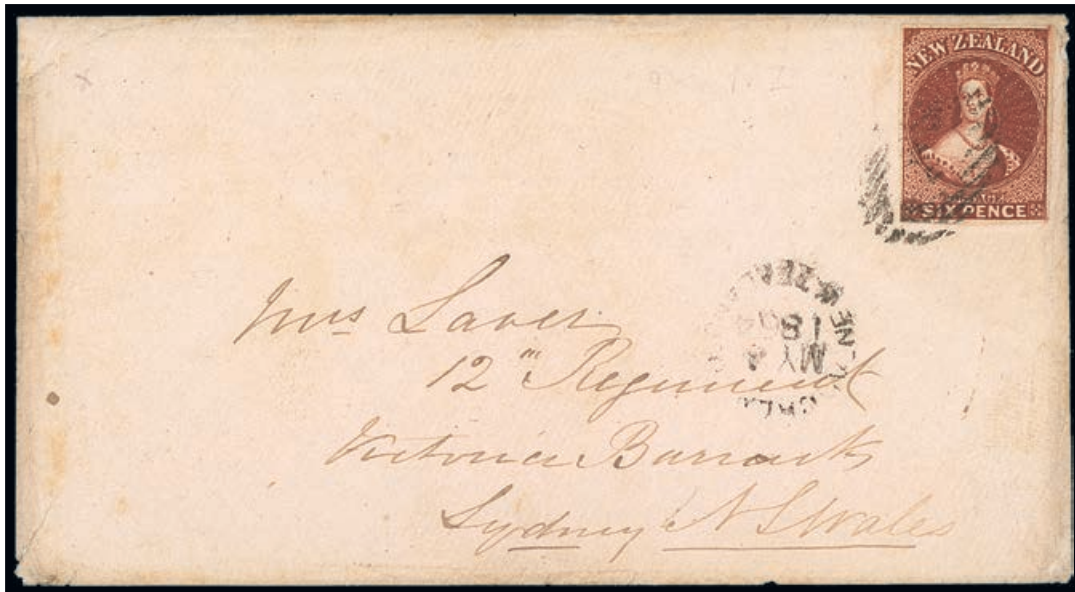 NEW ZEALAND
SIX PENCE
Mrs Laver
12th Regiment
Victoria Barracks
Sydney N S Wales
MY 4